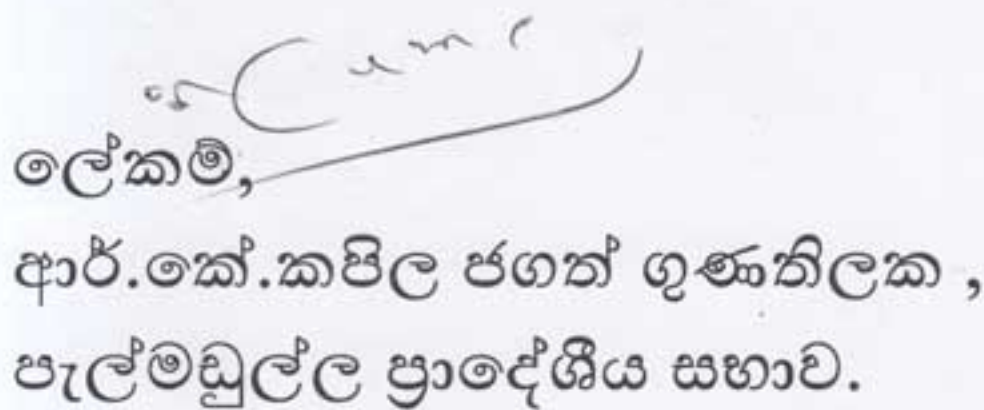 ලේකම්,
ආර්.කේ.කපිල ජගත් ගුණතිලක ,
පැල්මඩුල්ල ප්‍රාදේශීය සභාව.